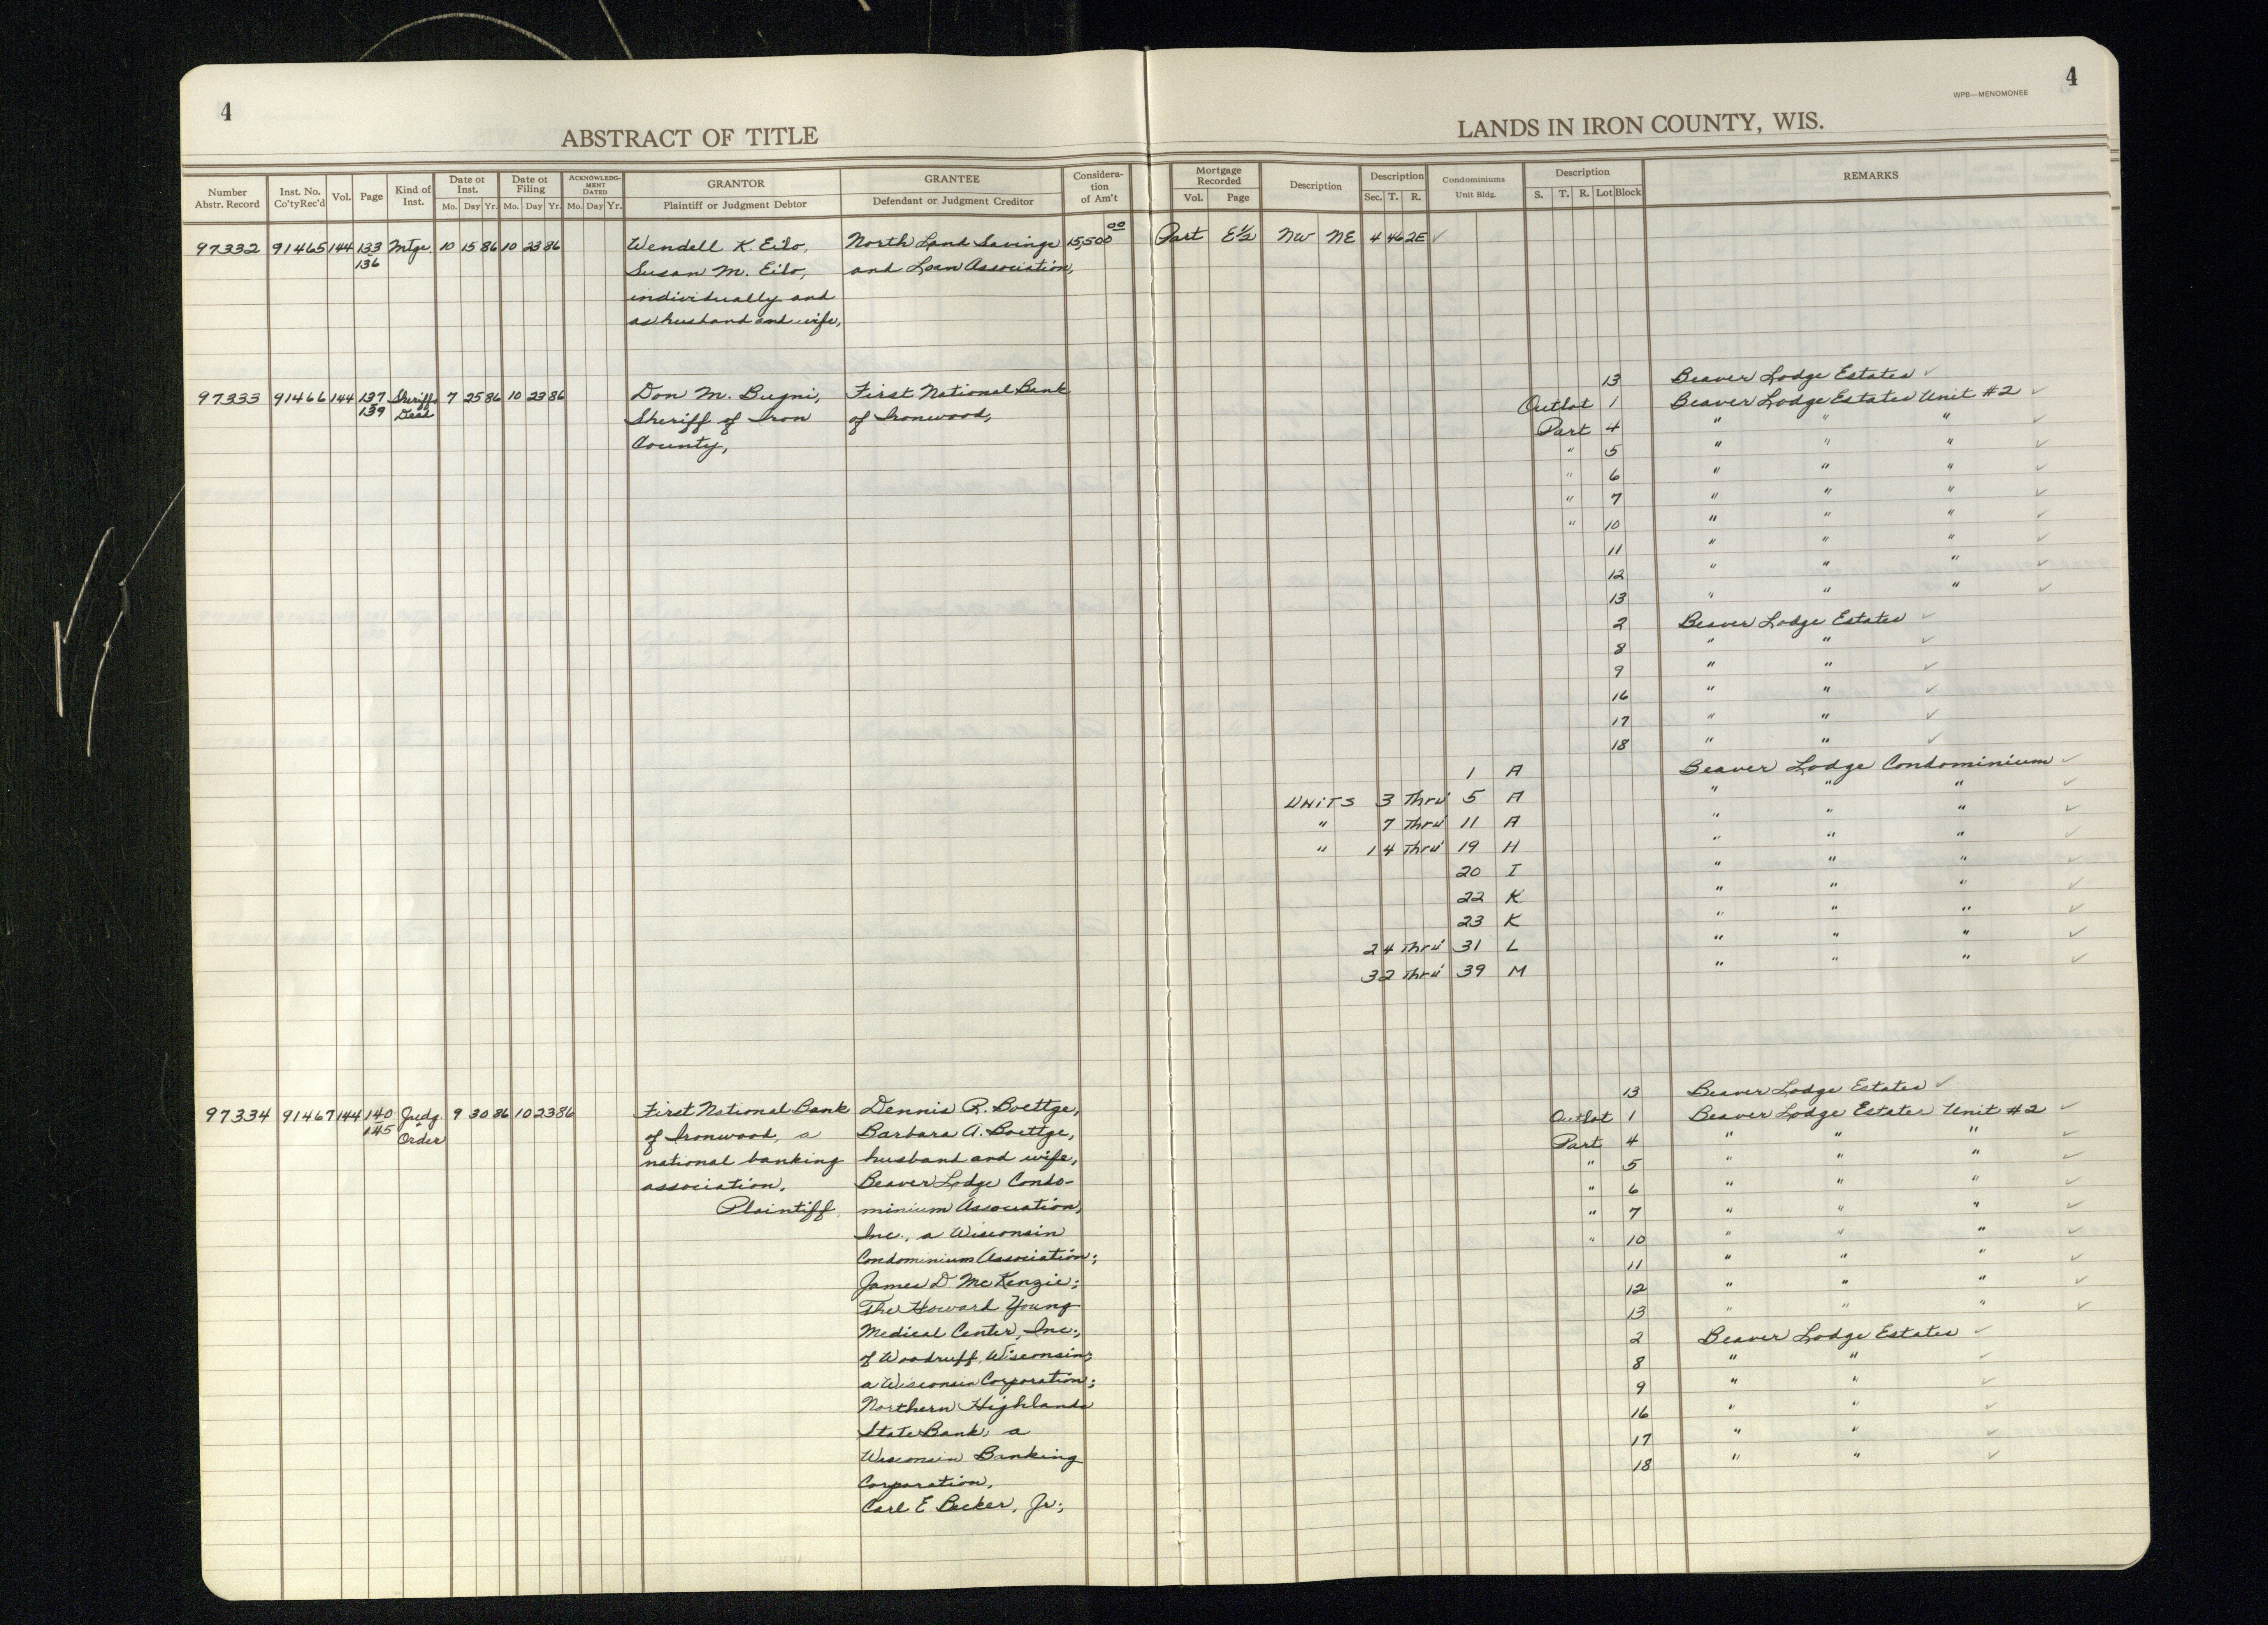 4
4
WPB—MENOMONEE
ABSTRACT OF TITLE
LANDS IN IRON COUNTY, WIS.
Number Abstr. Record
Inst. No. Co'ty Rec'd
Vol.
Page
Kind of Inst.
Date of Inst. Mo. Day Yr.
Date of Filing Mo. Day Yr.
ACKNOWLEDGMENT DATED Mo. Day Yr.
GRANTOR Plaintiff or Judgment Debtor
GRANTEE Defendant or Judgment Creditor
Consideration of Am't
Mortgage Recorded Vol. Page
Description
Description Sec. T. R.
Condominiums Unit Bldg.
Description S. T. R. Lot Block
REMARKS
97332 91465 144 133 136 Mtge. 10 15 86 10 23 86
Wendell K. Eilo,
Susan M. Eilo,
individually and
as husband and wife,
North Land Savings
and Loan Association,
15,500 00
Part E½ NW NE 4 46 2E ✓
97333 91466 144 137 139 Sheriffs Deed 7 25 86 10 23 86
Don M. Bugni,
Sheriff of Iron
County,
First National Bank
of Ironwood,
13 Beaver Lodge Estates ✓
Outlot 1 Beaver Lodge Estates Unit #2 ✓
Part 4 " " " ✓
" 5 " " " ✓
" 6 " " " ✓
" 7 " " " ✓
" 10 " " " ✓
11 " " " ✓
12 " " " ✓
13 " " " ✓
2 Beaver Lodge Estates ✓
8 " " ✓
9 " " ✓
16 " " ✓
17 " " ✓
18 " " ✓
1 A Beaver Lodge Condominium ✓
UNITS 3 Thru 5 A " " " ✓
" 7 Thru 11 A " " " ✓
" 14 Thru 19 H " " " ✓
20 I " " " ✓
22 K " " " ✓
23 K " " " ✓
24 Thru 31 L " " " ✓
32 Thru 39 M " " " ✓
97334 91467 144 140 145 Judg. Order 9 30 86 10 23 86
First National Bank
of Ironwood, a
national banking
association,
Plaintiff
Dennis R. Boettge,
Barbara A. Boettge,
husband and wife,
Beaver Lodge Condo-
minium Association,
Inc., a Wisconsin
Condominium Association;
James D McKenzie;
The Howard Young
Medical Center, Inc.,
of Woodruff, Wisconsin;
a Wisconsin Corporation;
Northern Highlands
State Bank, a
Wisconsin Banking
Corporation,
Carl E. Becker, Jr.;
13 Beaver Lodge Estates ✓
Outlot 1 Beaver Lodge Estates Unit #2 ✓
Part 4 " " " ✓
" 5 " " " ✓
" 6 " " " ✓
" 7 " " " ✓
" 10 " " " ✓
11 " " " ✓
12 " " " ✓
13 " " " ✓
2 Beaver Lodge Estates ✓
8 " " ✓
9 " " ✓
16 " " ✓
17 " " ✓
18 " " ✓